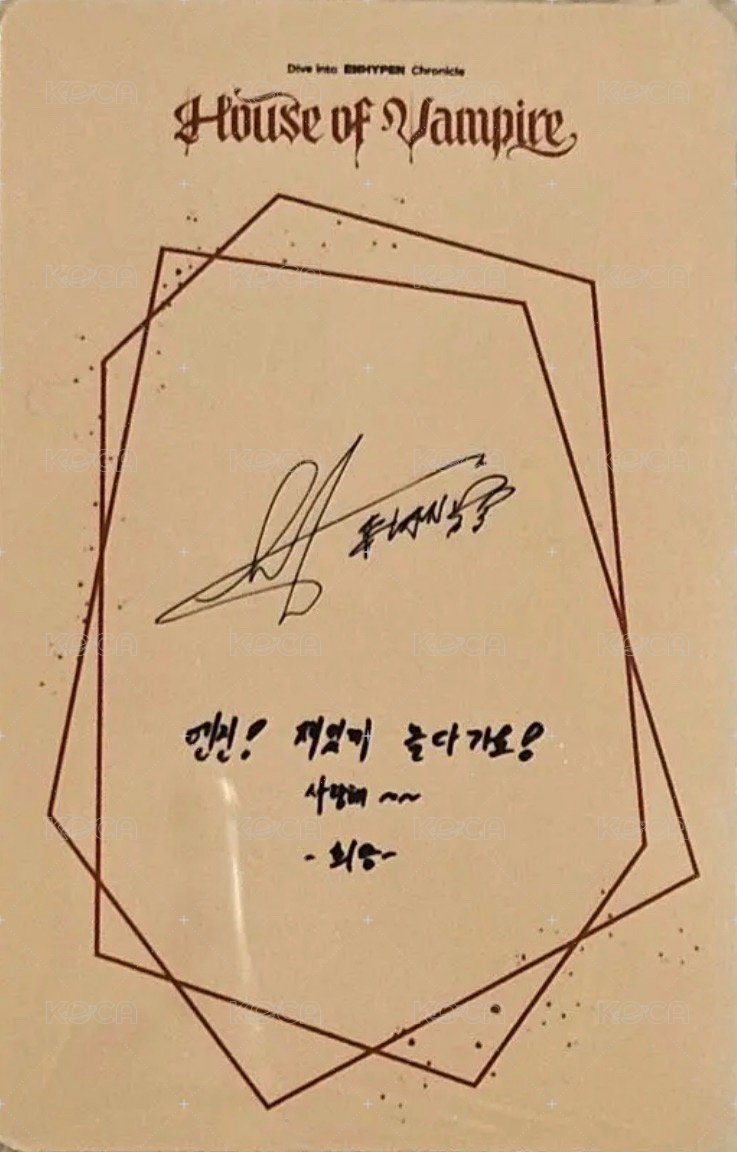 Dive into ENHYPEN Chronicle
House of Vampire
엔진! 재밌게 놀다가요!
사랑해 ~~
- 희승 -